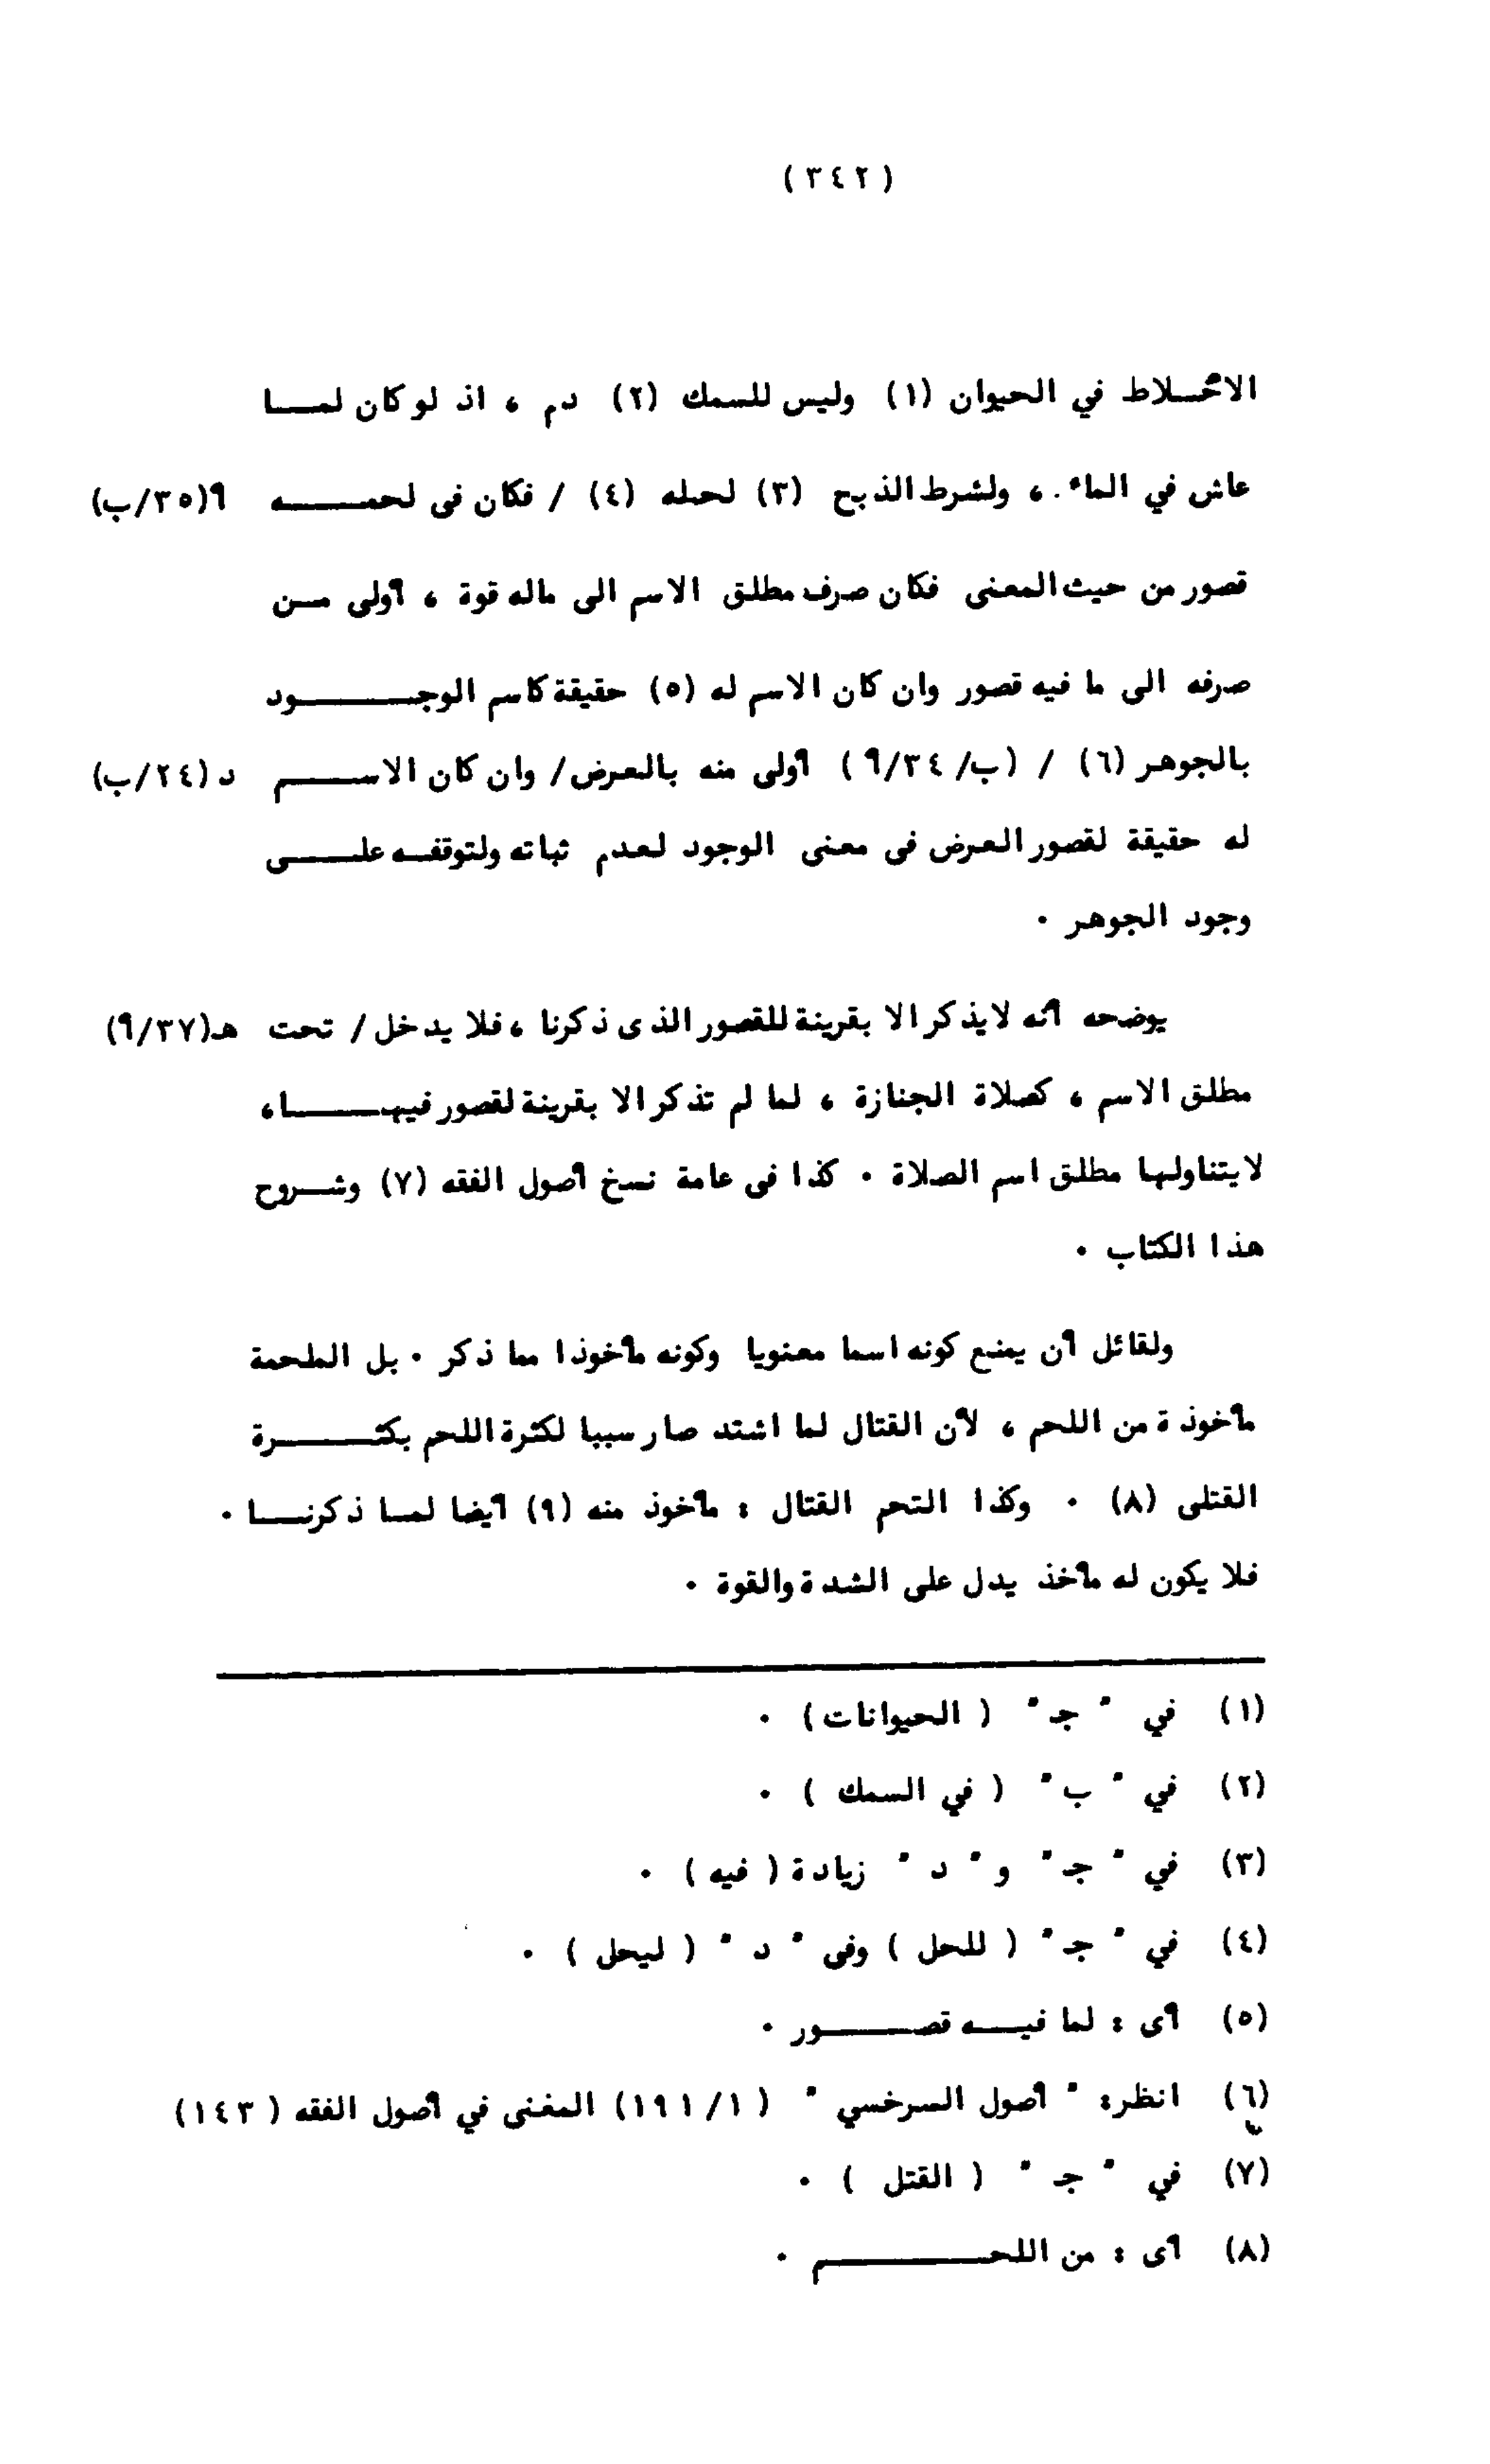 (٣٤٢)
الأخلاط في الحيوان (١) وليس للسمك (٢) دم ، اذ لو كان لما
عاش في الماء ، ولشرط الذبح (٣) لحله (٤) / فكان فى لحمه أ(٣٥/ب)
قصور من حيث المعنى فكان صرف مطلق الاسم الى ماله قوة ، أولى من
صرفه الى ما فيه قصور وان كان الاسم له (٥) حقيقة كاسم الوجود
بالجوهر (٦) / (ب/٣٤/أ) أولى منه بالعرض/ وان كان الاسم د(٢٤/ب)
له حقيقة لقصور العرض فى معنى الوجود لعدم ثباته ولتوقفه على
وجود الجوهر .
يوضحه أنه لايذكر الا بقرينة للقصور الذى ذكرنا ، فلا يدخل / تحت هـ(٣٧/أ)
مطلق الاسم ، كصلاة الجنازة ، لما لم تذكر الا بقرينة لقصور فيها ،
لايتناولها مطلق اسم الصلاة . كذا فى عامة نسخ أصول الفقه (٧) وشروح
هذا الكتاب .
ولقائل أن يمنع كونه اسما معنويا وكونه مأخوذا مما ذكر . بل الملحمة
مأخوذة من اللحم ، لأن القتال لما اشتد صار سببا لكثرة اللحم بكثرة
القتلى (٨) . وكذا التحم القتال : مأخوذ منه (٩) أيضا لما ذكرنا .
فلا يكون له مأخذ يدل على الشدة والقوة .
(١) في " جـ " ( الحيوانات) .
(٢) في " ب " ( في السمك ) .
(٣) في " جـ " و " د " زيادة ( فيه ) .
(٤) في " جـ " ( للحل ) وفى " د " ( ليحل ) .
(٥) أى : لما فيه قصور .
(٦) انظر: " أصول السرخسي " ( ١٩١/١) المغنى في أصول الفقه ( ١٤٣)
(٧) في " جـ " ( القتل ) .
(٨) أى : من اللحم .